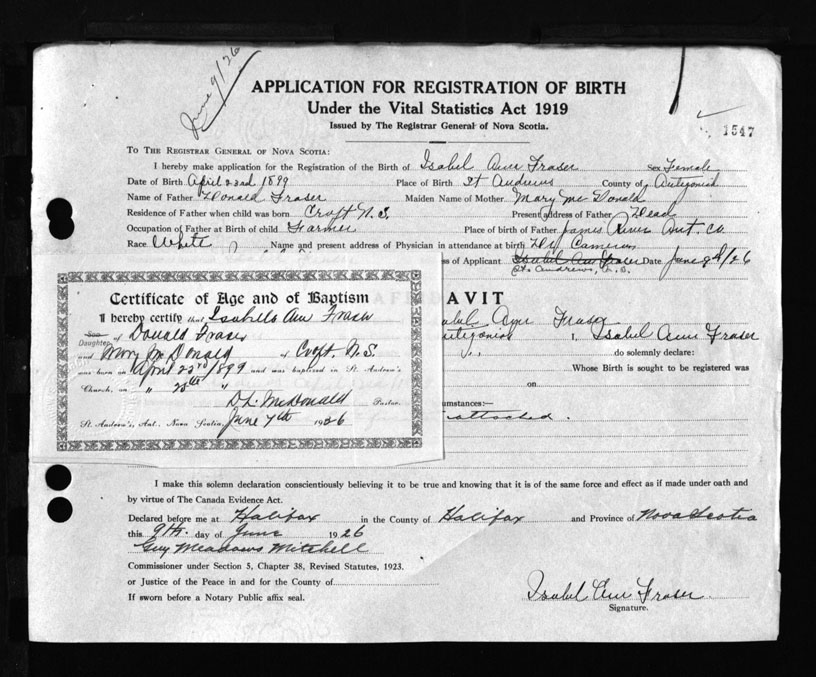 June 9/26
APPLICATION FOR REGISTRATION OF BIRTH
Under the Vital Statistics Act 1919
Issued by The Registrar General of Nova Scotia.
1547
To The Registrar General of Nova Scotia:
I hereby make application for the Registration of the Birth of Isabel Ann Fraser Sex Female
Date of Birth April 22nd 1899 Place of Birth St Andrews County of Antigonish
Name of Father Donald Fraser Maiden Name of Mother Mary Mc Donald
Residence of Father when child was born Croft N.S. Present address of Father Dead
Occupation of Father at Birth of child Farmer Place of birth of Father James River Ant. Co
Race White Name and present address of Physician in attendance at birth Dr Cameron
s of Applicant Isabel Ann Fraser Date June 9th/26
St. Andrews, N.S.
Certificate of Age and of Baptism
I hereby certify that Isabella Ann Fraser
Son
Daughter of Donald Fraser
and Mary McDonald of Croft, N.S.
was born on April 22nd 1899 and was baptized in St. Andrew's
Church, on " 25th "
D. L. McDonald Pastor.
St. Andrew's, Ant., Nova Scotia, June 7th 1926
AVIT
Ann Fraser
I, Isabel Ann Fraser
do solemnly declare:
Whose Birth is sought to be registered was
on
cumstances:—
attached.
I make this solemn declaration conscientiously believing it to be true and knowing that it is of the same force and effect as if made under oath and
by virtue of The Canada Evidence Act.
Declared before me at Halifax in the County of Halifax and Province of Nova Scotia
this 9th. day of June 1926
Guy Meadows Mitchell
Commissioner under Section 5, Chapter 38, Revised Statutes, 1923.
or Justice of the Peace in and for the County of
If sworn before a Notary Public affix seal.
Isabel Ann Fraser
Signature.